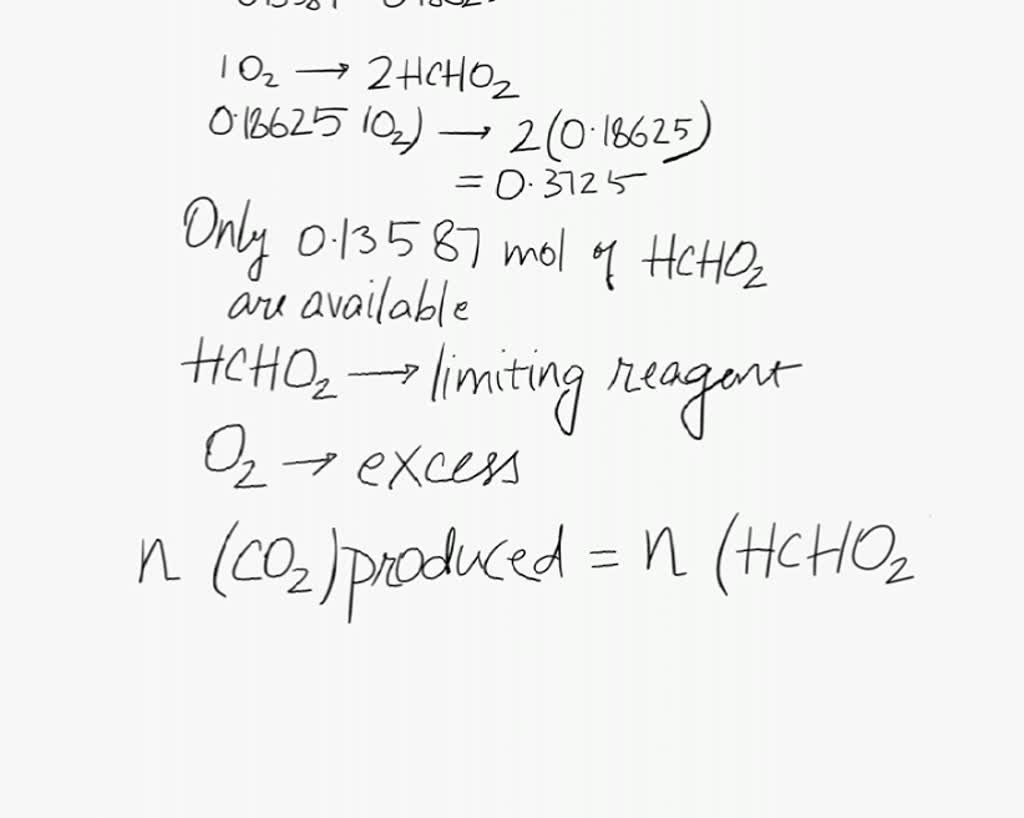 1 O₂ → 2HCHO₂
0.18625 (O₂) → 2(0.18625)
= 0.3725
Only 0.13587 mol of HCHO₂
are available
HCHO₂ → limiting reagent
O₂ → excess
n (CO₂) produced = n (HCHO₂